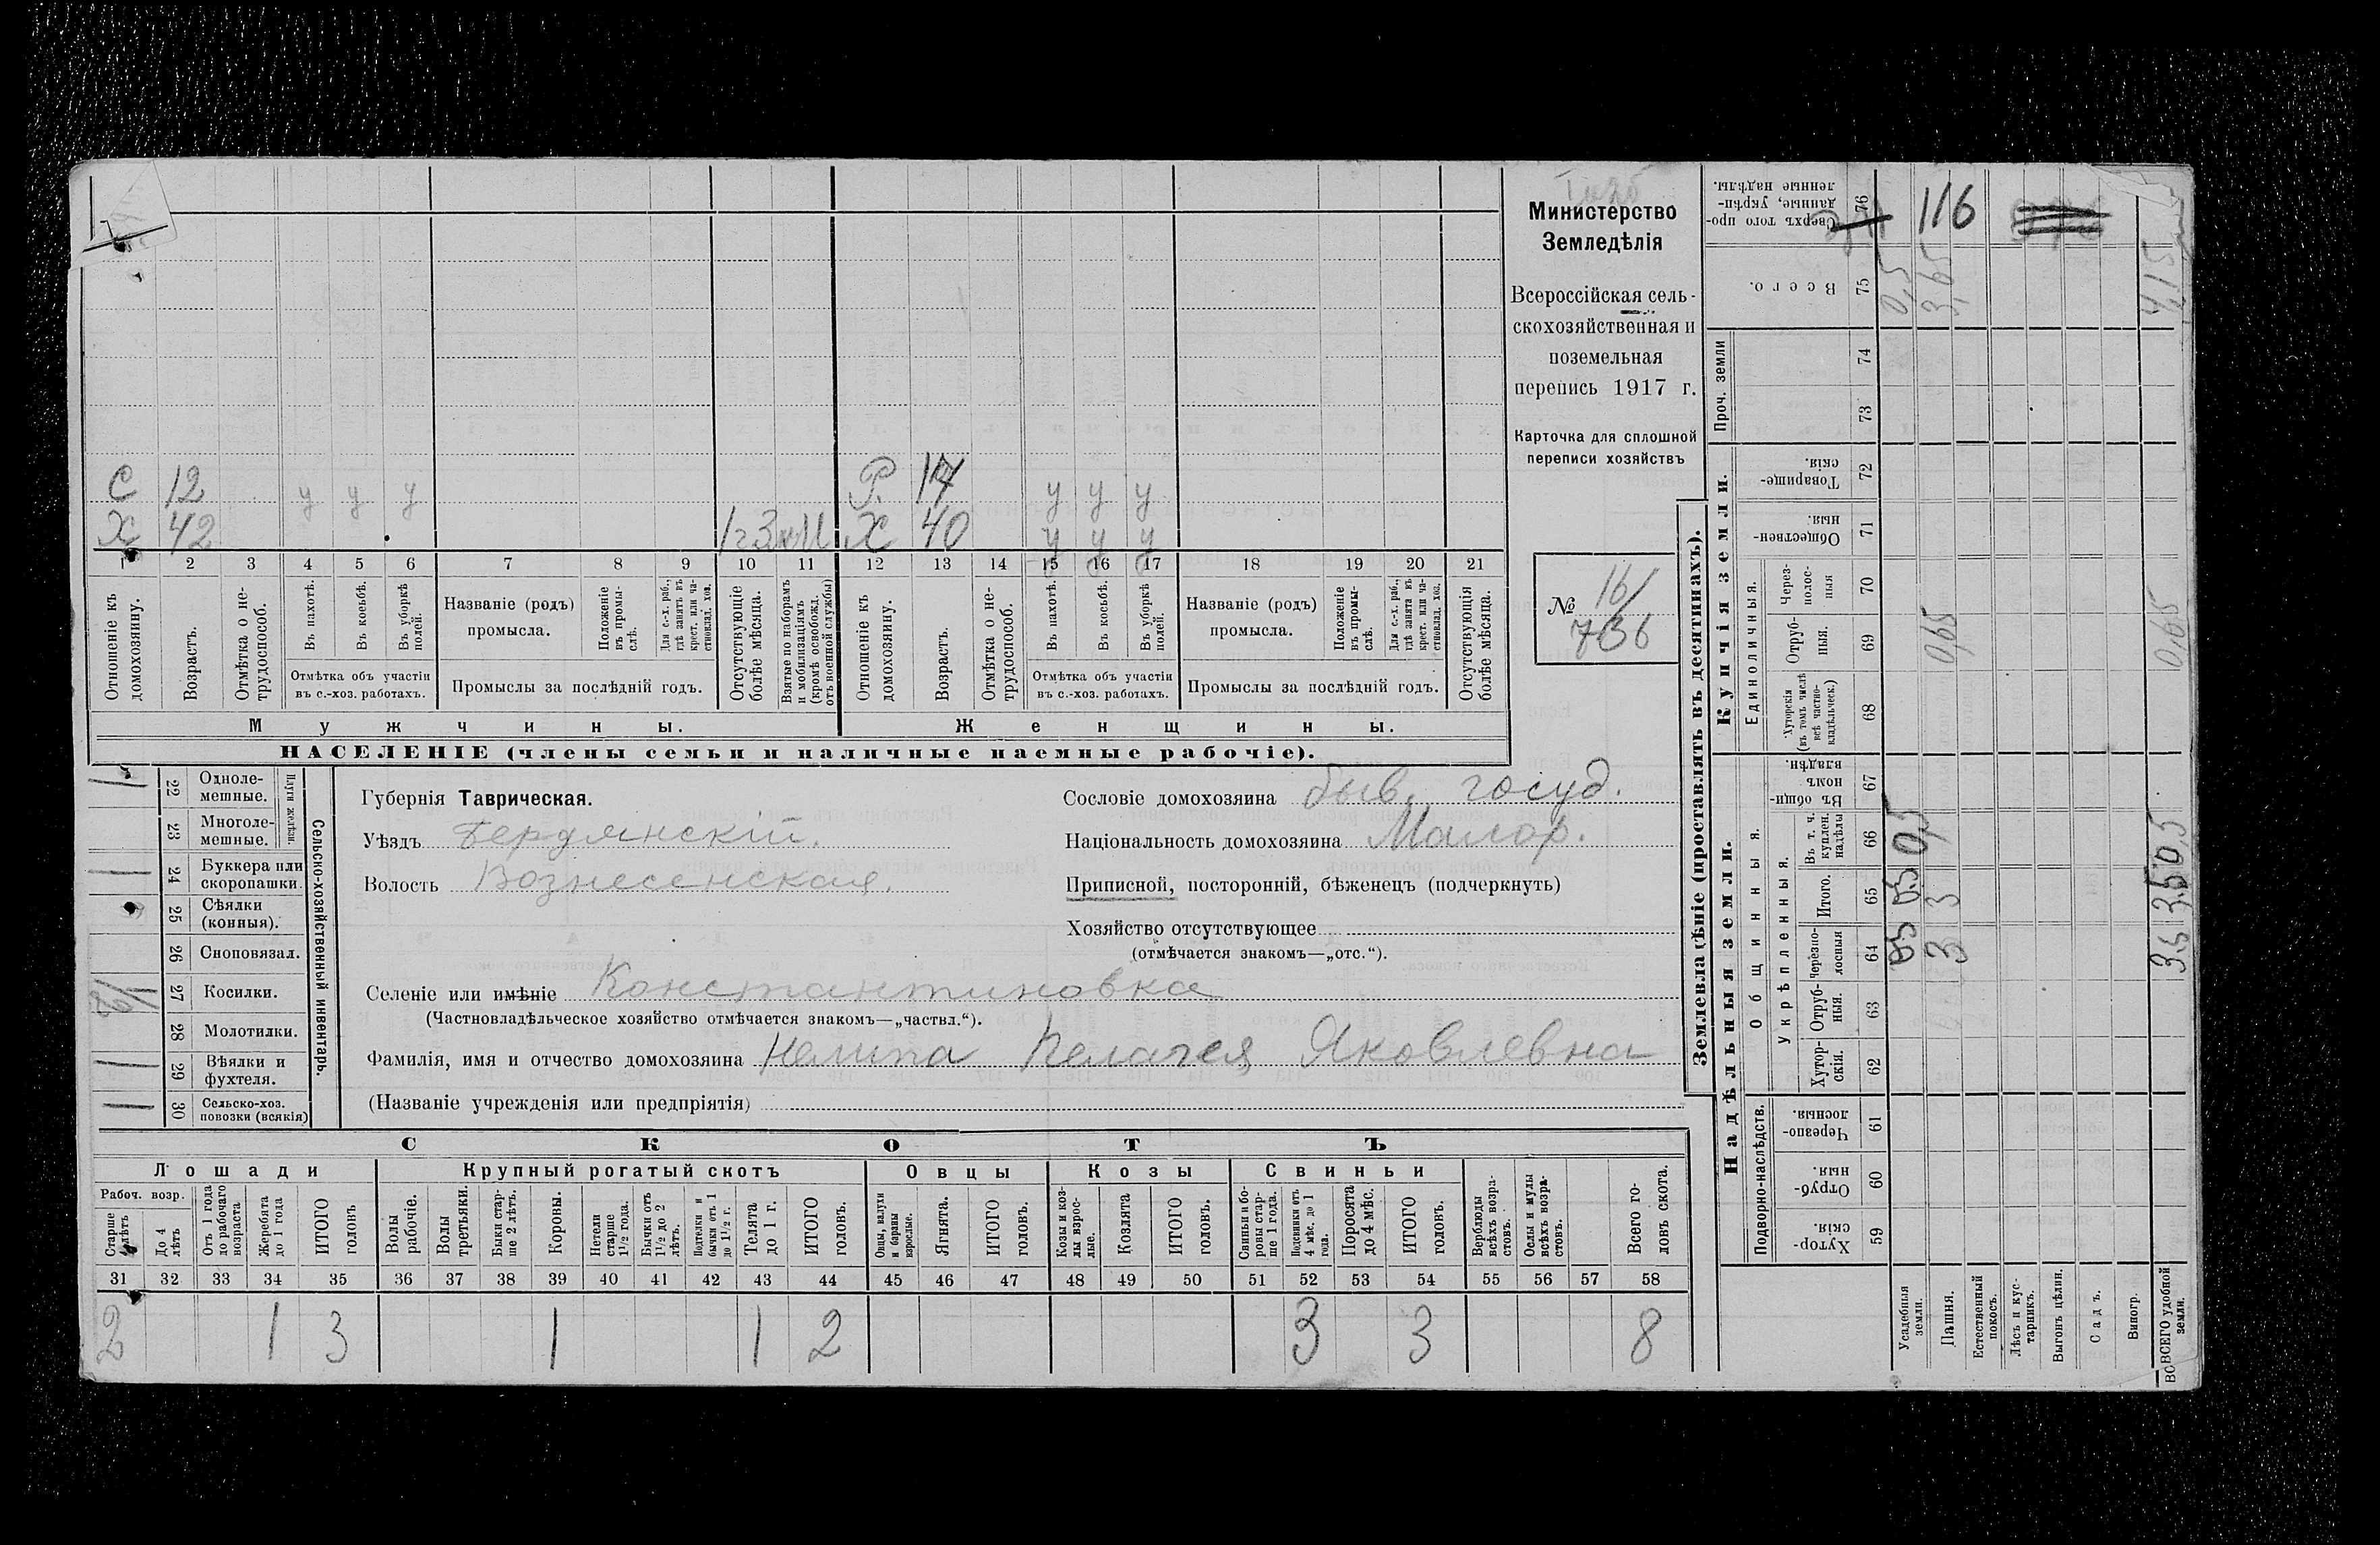 Министерство
Земледѣлія
Всероссійская сель-
скохозяйственная и
поземельная
перепись 1917 г.
Карточка для сплошной
переписи хозяйствъ
№ 16/
736
С 12 у у у Р. 17 у у у
Х 42 Х 40 у у у
1 2 3 4 5 6 7 8 9 10 11 12 13 14 15 16 17 18 19 20 21
Отношеніе къ домохозяину.
Возрастъ.
Отмѣтка о не-трудоспособ.
Въ пахотѣ.
Въ косьбѣ.
Въ уборкѣ полей.
Отмѣтка объ участіи въ с.-хоз. работахъ.
Названіе (родъ) промысла.
Положеніе въ промы-слѣ.
Для с.-х. раб., гдѣ занятъ въ крест. или ча-стновлад. хоз.
Промыслы за послѣдній годъ.
Отсутствующіе болѣе мѣсяца.
Взятые по наборамъ и мобилизаціямъ (кромѣ освобожд. отъ военной службы)
Отношеніе къ домохозяину.
Возрастъ.
Отмѣтка о не-трудоспособ.
Въ пахотѣ.
Въ косьбѣ.
Въ уборкѣ полей.
Отмѣтка объ участіи въ с.-хоз. работахъ.
Названіе (родъ) промысла.
Положеніе въ промы-слѣ.
Для с.-х. раб., гдѣ занята въ крест. или ча-стновлад. хоз.
Промыслы за послѣдній годъ.
Отсутствующія болѣе мѣсяца.
Мужчины. Женщины.
НАСЕЛЕНІЕ (члены семьи и наличные наемные рабочіе).
Сельско-хозяйственный инвентарь.
Плуги желѣзн.
22 Одноле-мешные. 1
23 Многоле-мешные.
24 Буккера или скоропашки. 1
25 Сѣялки (конныя).
26 Сноповязал.
27 Косилки.
28 Молотилки.
29 Вѣялки и фухтеля. 1
30 Сельско-хоз. повозки (всякія) 1
Губернія Таврическая.
Уѣздъ Бердянскій.
Волость Вознесенская.
Сословіе домохозяина быв. госуд.
Національность домохозяина Малор.
Приписной, посторонній, бѣженецъ (подчеркнуть)
Хозяйство отсутствующее
(отмѣчается знакомъ—„отс.“).
Селеніе или имѣніе Константиновка
(Частновладѣльческое хозяйство отмѣчается знакомъ—„частвл.“).
Фамилія, имя и отчество домохозяина Нелипа Пелагея Яковлевна
(Названіе учрежденія или предпріятія)
СКОТЪ
Лошади Крупный рогатый скотъ Овцы Козы Свиньи
Рабоч. возр.
Старше 4 лѣтъ
До 4 лѣтъ
Отъ 1 года до рабочаго возраста
Жеребята до 1 года
ИТОГО головъ
Волы рабочіе.
Волы третьяки.
Быки стар-ше 2 лѣтъ.
Коровы.
Нетели старше 1½ года.
Бычки отъ 1½ до 2 лѣтъ.
Подтелки и бычки отъ 1 до 1½ г.
Телята до 1 г.
ИТОГО головъ.
Овцы, валухи и бараны взрослые.
Ягнята.
ИТОГО головъ.
Козы и коз-лы взрос-лые.
Козлята
ИТОГО головъ.
Свиньи и бо-ровы стар-ше 1 года.
Подсвинки отъ 4 мѣс. до 1 года.
Поросята до 4 мѣс.
ИТОГО головъ.
Верблюды всѣхъ возра-стовъ.
Ослы и мулы всѣхъ возра-стовъ.
Всего го-ловъ скота.
31 32 33 34 35 36 37 38 39 40 41 42 43 44 45 46 47 48 49 50 51 52 53 54 55 56 57 58
2 1 3 1 1 2 3 3 8
Землевладѣніе (проставлять въ десятинахъ).
Сверхъ того про-данные, укрѣп-ленные надѣлы. 76 116
Всего. 75 0,5 3,65 4,15
Проч. земли 74 73
Купчія земли.
Товарище-скія. 72
Обществен-ныя. 71
Единоличныя.
Через-полос-ныя 70
Отруб-ныя. 69 0,65 0,65
Хуторскія (въ томъ числѣ всѣ частно-владѣльческ.) 68
Надѣльныя земли.
Общинныя.
Въ общи-номъ владѣн. 67
Укрѣпленныя.
Въ т. ч. куплен. надѣлы 66 0,5
Итого. 65 0,5 3 3,5
Черезпо-лосныя 64 0,5 3 3,5
Отруб-ныя. 63
Хутор-скія. 62
Подворно-наслѣдств.
Черезпо-лосныя. 61
Отруб-ныя. 60
Хутор-скія. 59
Усадебныя земли.
Пашня.
Естественный покосъ.
Лѣсъ и кус-тарникъ.
Выгонъ цѣлин.
Садъ.
Виногр.
ВСЕГО удобной земли.